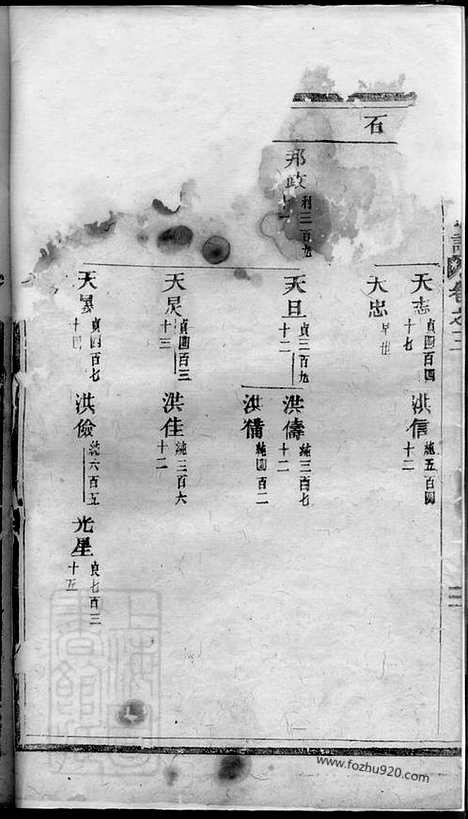 石
邦政 利三百九
天志 貞四百四十七
洪信 純五百四十二
天忠 早世
天旦 貞三百九十二
洪儔 純三百七十二
洪備 純四百二
天炅 貞四百三十三
洪佳 純三百六十二
天 貞四百七十四
洪儉 純六百五
光星 貞七百三十五
卷之三
www.fozhu920.com